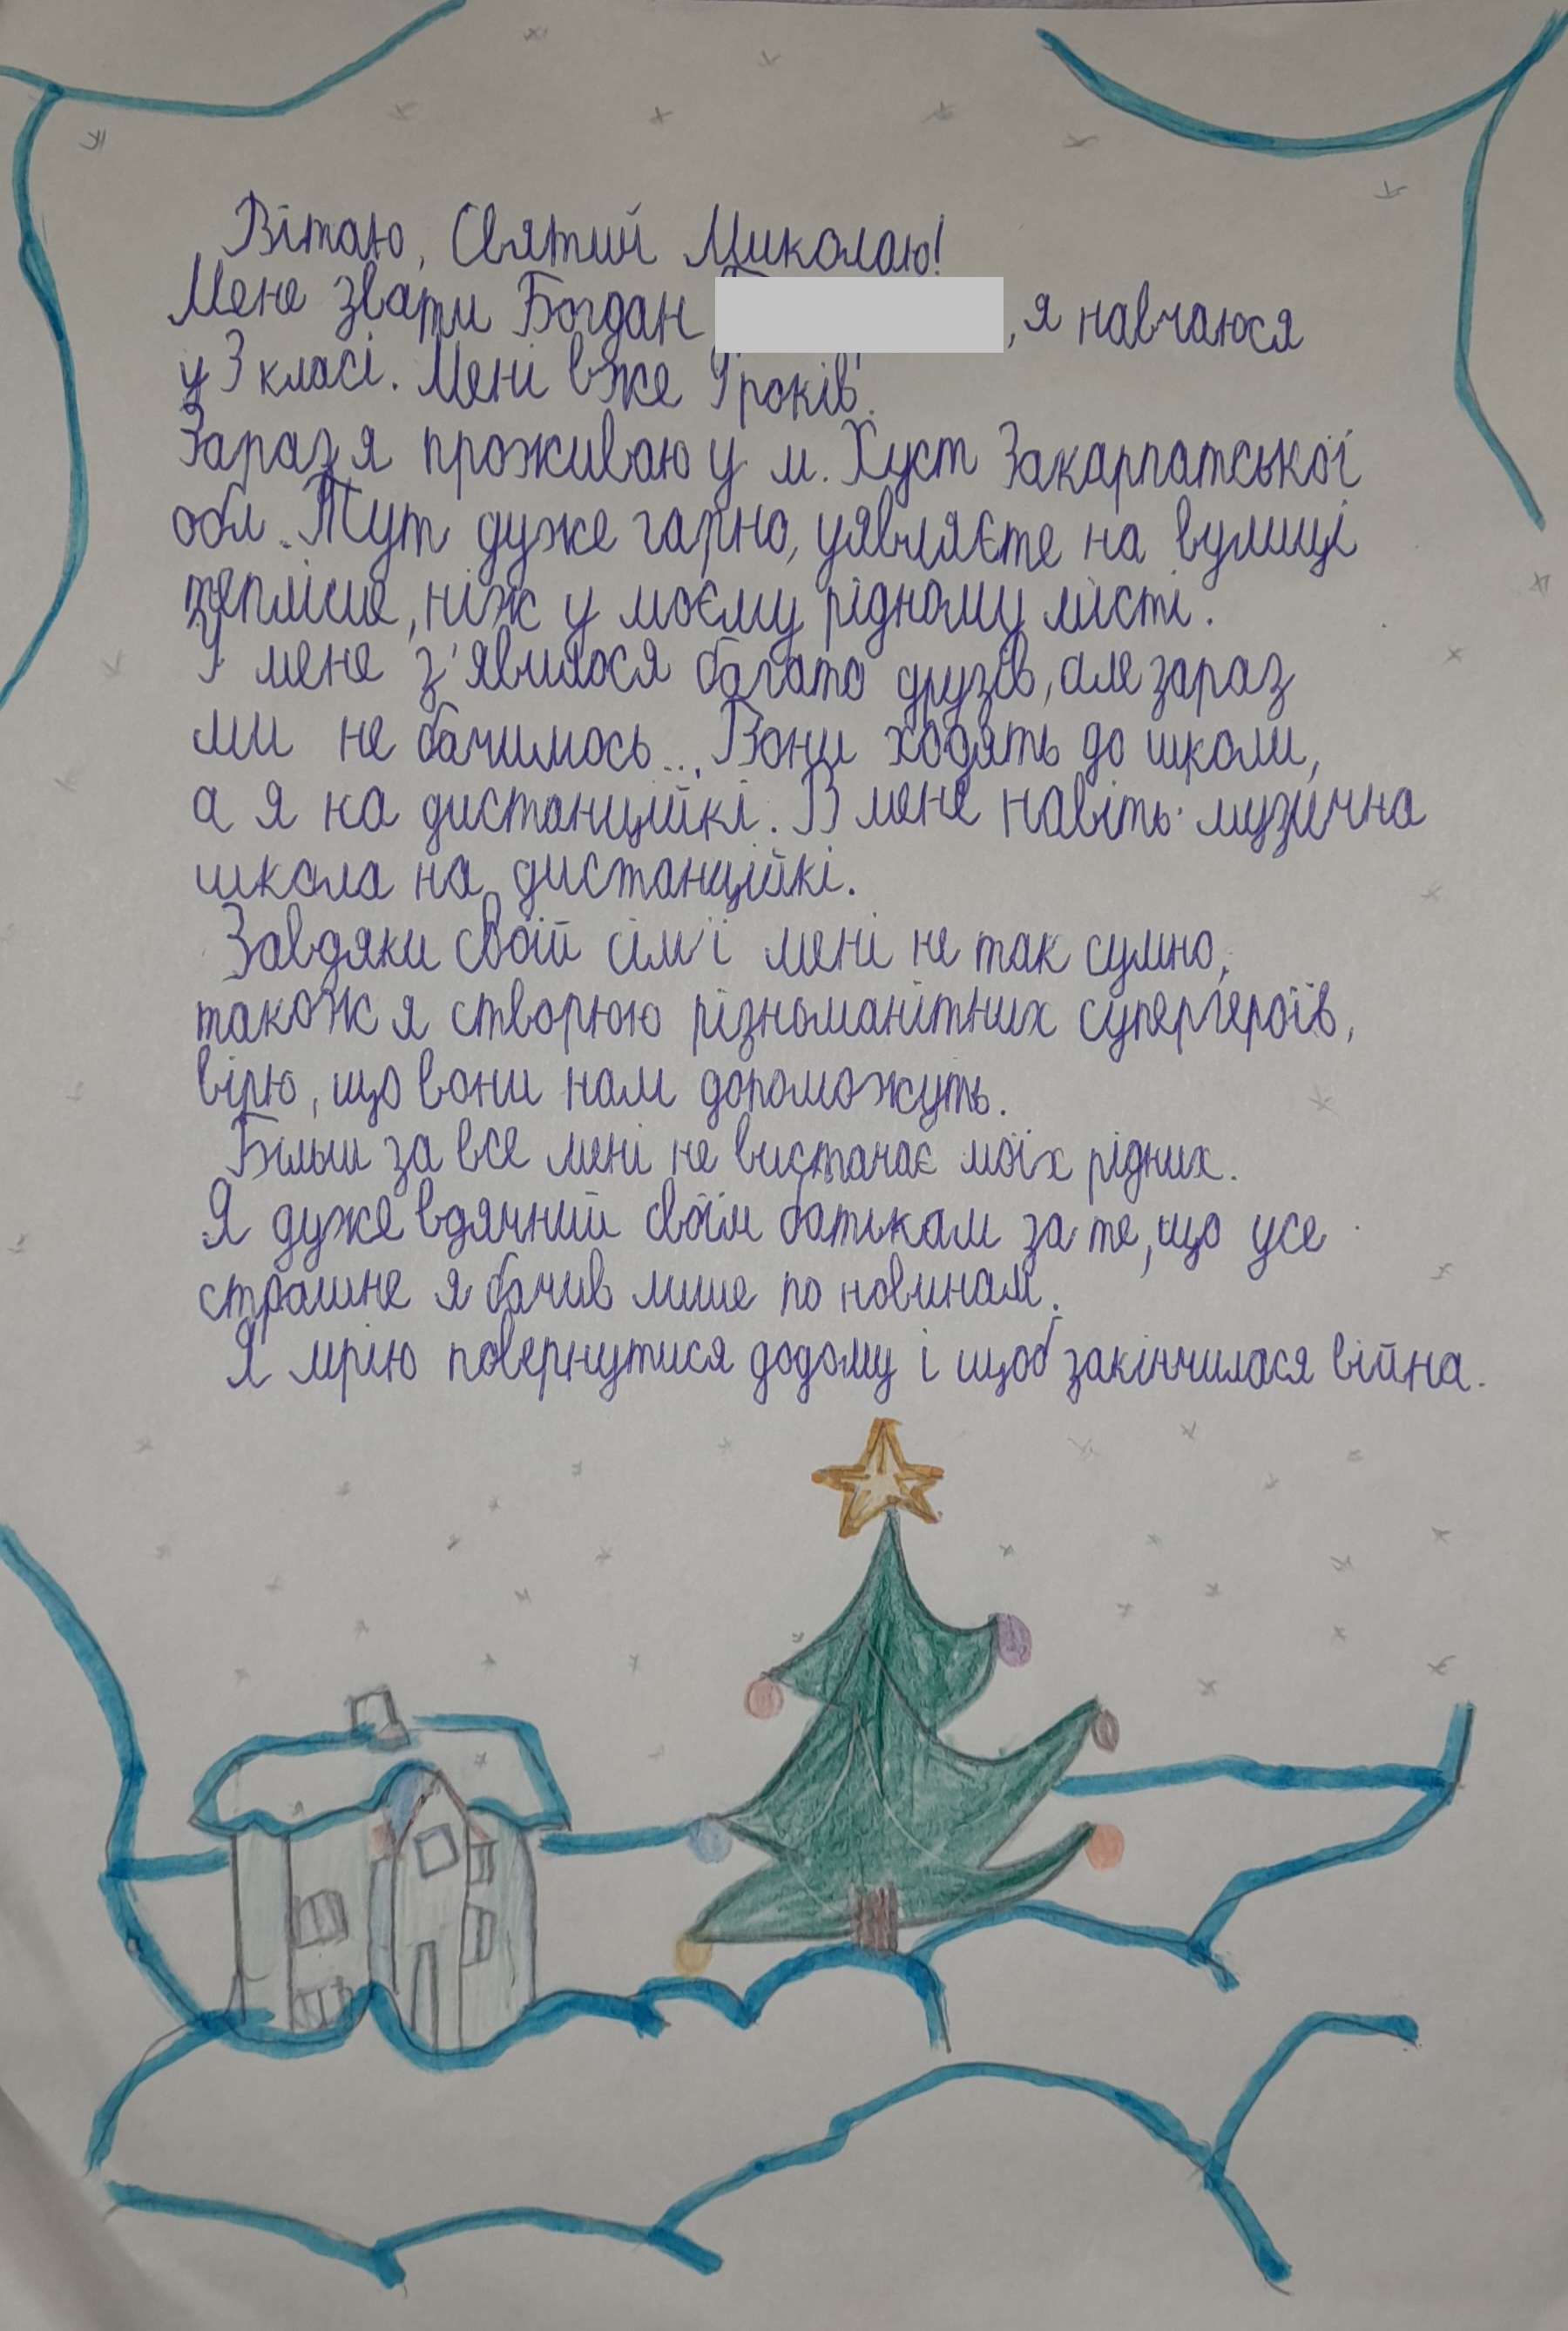 Вітаю, Святий Миколаю!
Мене звати Богдан , я навчаюся
у 3 класі. Мені вже 9 років.
Зараз я проживаю у м. Хуст Закарпатської
обл. Тут дуже гарно, уявляєте на вулиці
тепліше, ніж у моєму рідному місті.
У мене з'явилося багато друзів, але зараз
ми не бачимось... Вони ходять до школи,
а я на дистанційкі. В мене навіть музична
школа на дистанційкі.
Завдяки своїй сім'ї мені не так сумно,
також я створюю різноманітних супергероїв,
вірю, що вони нам допоможуть.
Більш за все мені не вистачає моїх рідних.
Я дуже вдячний своїм батькам за те, що усе
страшне я бачив лише по новинам.
Я мрію повернутися додому і щоб закінчилася війна.